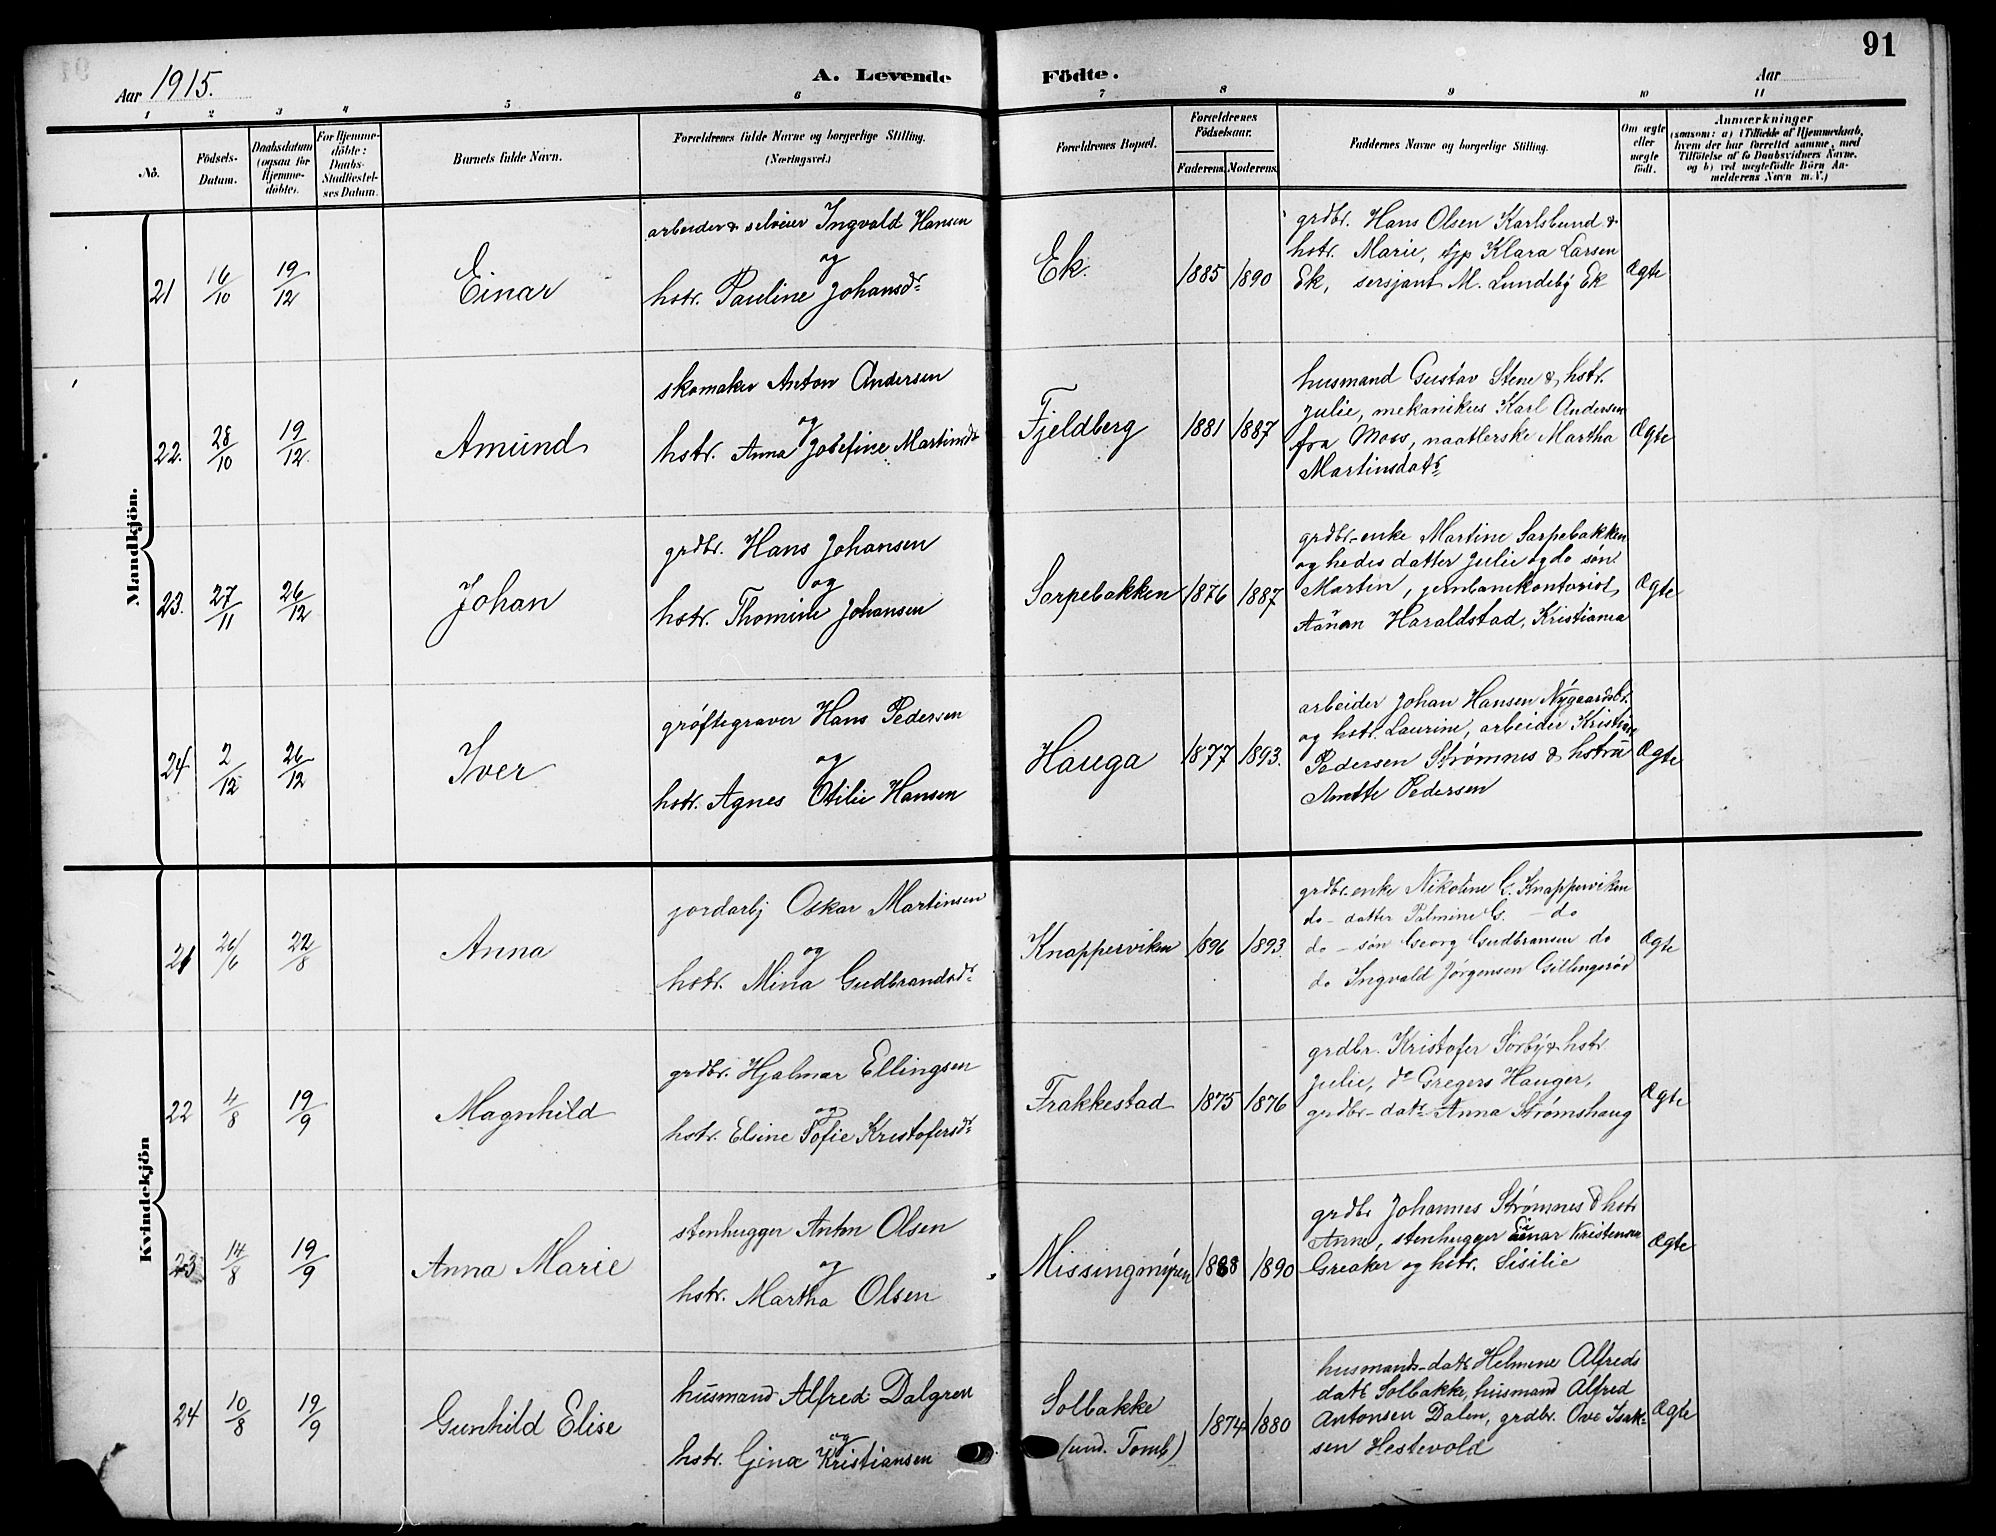 91
Aar 1915.
A. Levende Födte.
Aar
1 2 3 4 5 6 7 8 9 10 11
No.
Födsels-
Datum.
Daabsdatum
(ogsaa for
Hjemme-
döbte).
For Hjemme-
döbte:
Daabs-
Stadfæstel-
ses Datum.
Barnets fulde Navn.
Forældrenes fulde Navne og borgerlige Stilling.
(Næringsvei.)
Forældrenes Bopæl.
Forældrenes
Födselsaar.
Faderens. Moderens.
Faddernes Navne og borgerlige Stilling.
Om ægte
eller
uægte
født.
Anmærkninger
(saasom: a) i Tilfælde af Hjemmedaab,
hvem der har forrettet samme, med
Tilföielse af to Daabsvidners Navne.
og b) ved uægtefödte Börn An-
melderens Navn m. V.)
Mandkjön.
21 16/10 19/12
Einar
arbeider & selveier Ingvald Hansen
og
hstr. Pauline Johansdr
Ek.
1885 1890
grdbr. Hans Olsen Karlslund &
hstr. Marie, tjp Klara Larsen
Ek, sersjant M. Lundeby Ek
Ægte
22. 28/10 19/12.
Amund
skomaker Anton Andersen
og
hstr. Anna Josefine Martinsdr
Fjeldberg
1881 1887
husmand Gustav Stene & hstr.
Julie, mekanikus Karl Andersen
fra Moss, naatlerske Martha
Martinsdatr
Ægte
23. 27/11 26/12
Johan
grdbr. Hans Johansen
og
hstr. Thomine Johansen
Sarpebakken
1876 1887
grdbr-enke Martine Sarpebakken
og hedes datter Julie og do søn
Martin, jernbanekontorist
Haraldstad, Kristiania
Ægte
24 2/12 26/12
Iver
grøftegraver Hans Pedersen
og
hstr. Agnes Otilie Hansen
Hauga
1877 1893.
arbeider Johan Hansen Nygaardsbr.
og hstr. Laurine, arbeider Kristian
Pedersen Strømnes & hstru
Anette Pedersen
Ægte
Kvindekjön
21 20/6 22/8
Anna
jordarbj Oskar Martinsen
og
hstr. Mina Gudbrandsdr
Knapperviken
1896 1893.
grdbr.enke Nikoline G. Knapperviken
do - datter Palmine G. - do
do - søn Georg Gudbransen do
do Ingvald Jørgensen Gillingsrød
Ægte
22 4/8 19/9
Magnhild
grdbr. Hjalmar Ellingsen
og
hstr. Elsine Sofie Kristofersdr
Frakkestad
1875 1876
grdbr. Kristofer Sørby & hstr
Julie, do Gregers Hauger,
grdbr-datr Anna Strømshaug
Ægte
23 14/8 19/9
Anna Marie
stenhugger Anton Olsen
og
hstr. Martha Olsen
Missingmyren
1888 1890
grdbr Johannes Strømnes & hstr
Anne, stenhugger Einar Kristensen
Greaker og hstr. Sisilie
Ægte
24 10/8 19/9
Gunhild Elise
husmand Alfred Dalgren
og
hstr. Gina Kristiansen
Solbakke
(und. Tomb)
1874 1880
husmands-datr Helmine Alfreds
datr Solbakke, husmand Alfred
Antonsen Dalen, grdbr. Ove Isak-
sen Hestevold
Ægte